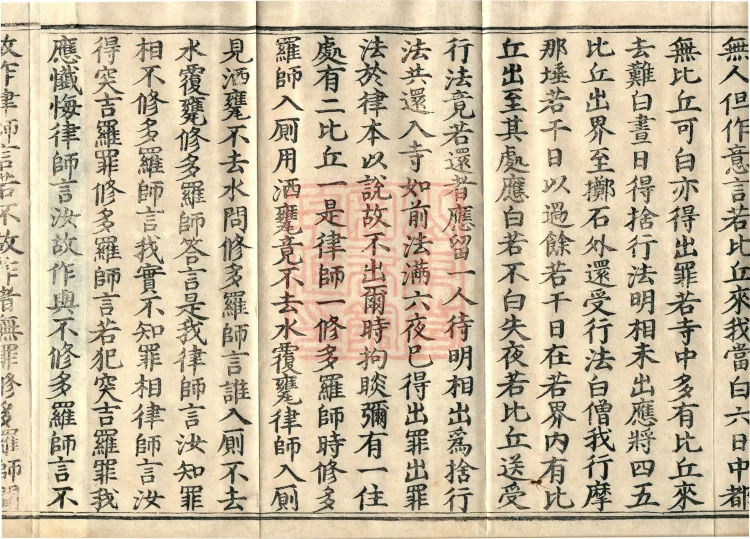 無人但作意言若比丘來我當白六日中都
無比丘可白亦得出罪若寺中多有比丘來
去難白晝日得捨行法明相未出應將四五
比丘出界至擲石外還受行法白僧我行摩
那埵若干日以過餘若干日在若界內有比
丘出至其處應白若不白失夜若比丘送受
行法竟若還者應留一人待明相出為捨行
法共還入寺如前法滿六夜已得出罪出罪
法於律本以說故不出爾時拘睒彌有一住
處有二比丘一是律師一修多羅師時修多
羅師入厠用洒甕竟不去水覆甕律師入厠
見洒甕不去水問修多羅師言誰入厠不去
水覆甕修多羅師答言是我律師言汝知罪
相不修多羅師言我實不知罪相律師言汝
得突吉羅罪修多羅師言若犯突吉羅罪我
應懺悔律師言汝故作與不修多羅師言不
故作律師言若不故作者無罪修多羅師聞